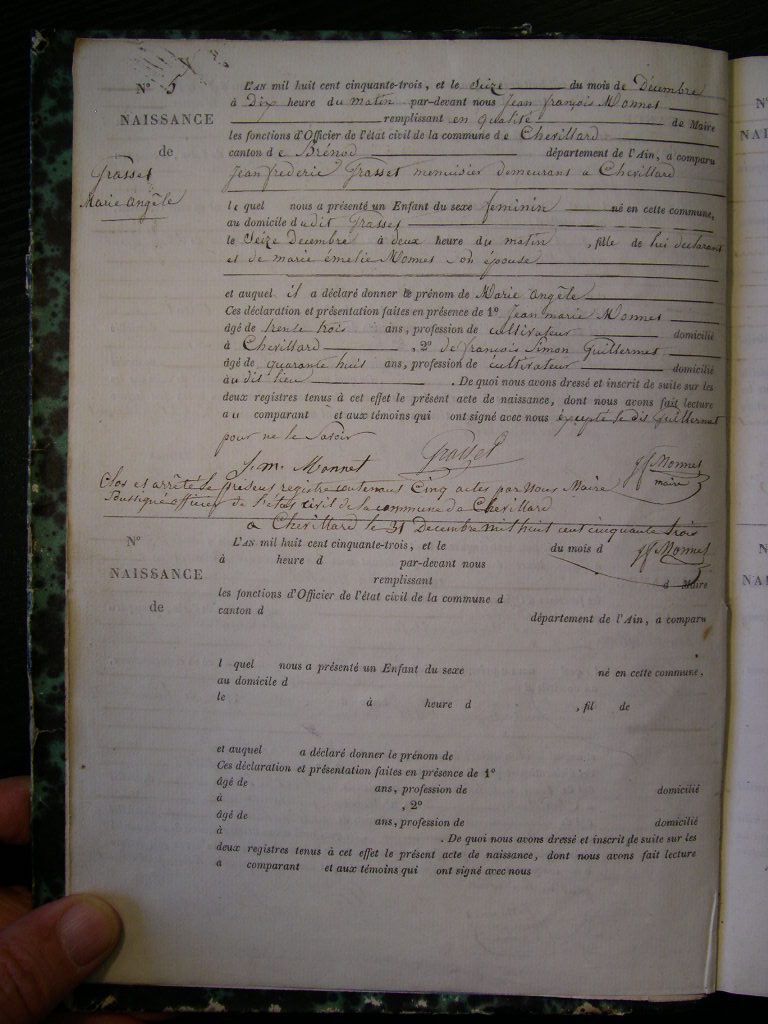 N° 5
NAISSANCE
de
Grasset
Marie angèle
L'AN mil huit cent cinquante-trois, et le Seize du mois de Décembre
à Dix heure du matin par-devant nous Jean françois Monnet
remplissant en qualité de Maire
les fonctions d'Officier de l'état civil de la commune de Chevillard
canton de Brénod département de l'Ain, a comparu
Jean frederic Grasset menuisier demeurant a Chevillard
lequel nous a présenté un Enfant du sexe feminin né en cette commune,
au domicile dudit Grasset
le Seize Decembre à deux heure du matin, fille de lui declarant
et de marie émelie Monnet son épouse
et auquel il a déclaré donner le prénom de Marie angèle
Ces déclaration et présentation faites en présence de 1° Jean marie Monnet
âgé de trente trois ans, profession de cultivateur domicilié
à Chevillard, 2° de françois Simon Guillermet
âgé de quarante huit ans, profession de cultivateur domicilié
au dit lieu. De quoi nous avons dressé et inscrit de suite sur les
deux registres tenus à cet effet le présent acte de naissance, dont nous avons fait lecture
au comparant et aux témoins qui ont signé avec nous excepté le dit Guillermet
pour ne le Savoir
J. m. Monnet Grasset JF Monnet
maire
Clos et arrêté le présent registre contenant Cinq actes par Nous Maire
Soussigné officier de l'état civil de la commune de Chevillard
a Chevillard le 31 Decembre mil huit cent cinquante trois
JF Monnet
N°
NAISSANCE
de
L'AN mil huit cent cinquante-trois, et le du mois d
à heure d par-devant nous
remplissant d Maire
les fonctions d'Officier de l'état civil de la commune d
canton d département de l'Ain, a comparu
l quel nous a présenté un Enfant du sexe né en cette commune,
au domicile d
le à heure d , fil de
et auquel a déclaré donner le prénom de
Ces déclaration et présentation faites en présence de 1°
âgé de ans, profession de domicilié
à , 2°
âgé de ans, profession de domicilié
à . De quoi nous avons dressé et inscrit de suite sur les
deux registres tenus à cet effet le présent acte de naissance, dont nous avons fait lecture
a comparant et aux témoins qui ont signé avec nous